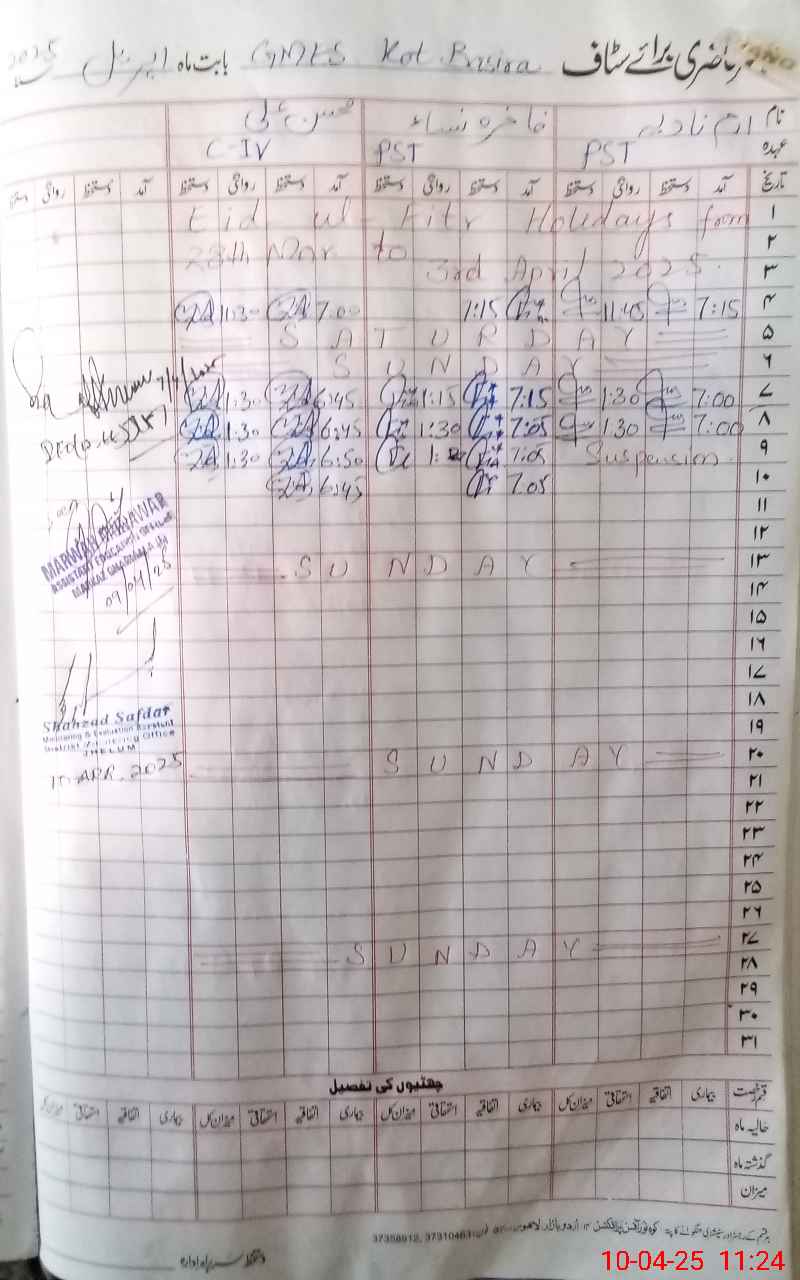 حاضری برائے سٹاف GMES Kot Basira بابت ماہ اپریل 2025
نام ارم نادیہ فاخرہ نساء محسن علی
عہدہ PST PST C-IV
تاریخ آمد دستخط روانگی دستخط آمد دستخط روانگی دستخط آمد دستخط روانگی دستخط آمد دستخط روانگی دستخط
۱ Eid ul-Fitr Holidays from
۲ 28th Mar to
۳ 3rd April 2025.
۴ 7:15 11:45 7:15 7:00 11:30
۵ SATURDAY
۶ SUNDAY
۷ 7:00 1:30 7:15 1:15 6:45 1:30
7/4/2025
۸ 7:00 1:30 7:05 1:30 6:45 1:30
۹ Suspension 7:05 6:50 1:30
۱۰ 7:05 6:45
۱۱
۱۲
۱۳ SUNDAY
۱۴
۱۵
۱۶
۱۷
۱۸
۱۹
۲۰ SUNDAY
۲۱
۲۲
۲۳
۲۴
۲۵
۲۶
۲۷ SUNDAY
۲۸
۲۹
۳۰
۳۱
ASSISTANT EDUCATION OFFICER
09/04/25
Shahzad Safdar
Monitoring & Evaluation Assistant
District Monitoring Office
JHELUM
10 APR. 2025
چھٹیوں کی تفصیل
قسم رخصت بیماری اتفاقیہ استحقاقی میزان کل بیماری اتفاقیہ استحقاقی میزان کل بیماری اتفاقیہ استحقاقی میزان کل بیماری اتفاقیہ استحقاقی میزان کل
حالیہ ماہ
گذشتہ ماہ
میزان
اردو بازار لاہور 37310463, 37358912
دستخط سربراہ ادارہ
10-04-25 11:24